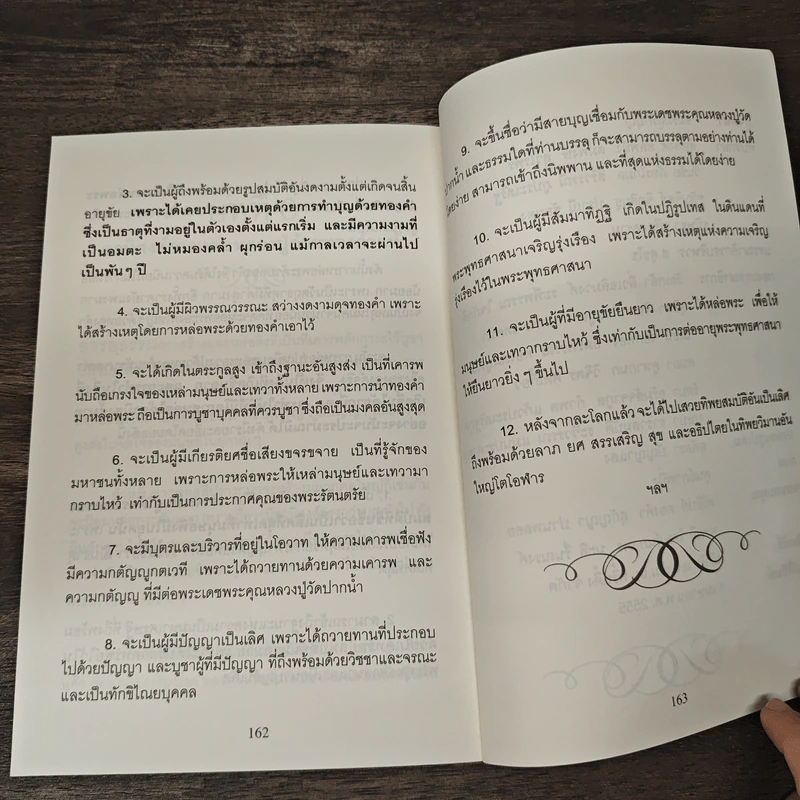 3. จะเป็นผู้ถึงพร้อมด้วยรูปสมบัติอันงดงามตั้งแต่เกิดจนสิ้น
อายุขัย เพราะได้เคยประกอบเหตุด้วยการทำบุญด้วยทองคำ
ซึ่งเป็นธาตุที่งามอยู่ในตัวเองตั้งแต่แรกเริ่ม และมีความงามที่
เป็นอมตะ ไม่หมองคล้ำ ผุกร่อน แม้กาลเวลาจะผ่านไป
เป็นพันๆ ปี
4. จะเป็นผู้มีผิวพรรณวรรณะ สว่างงดงามดุจทองคำ เพราะ
ได้สร้างเหตุโดยการหล่อพระด้วยทองคำเอาไว้
5. จะได้เกิดในตระกูลสูง เข้าถึงฐานะอันสูงส่ง เป็นที่เคารพ
นับถือเกรงใจของเหล่ามนุษย์และเทวาทั้งหลาย เพราะการนำทองคำ
มาหล่อพระ ถือเป็นการบูชาบุคคลที่ควรบูชา ซึ่งถือเป็นมงคลอันสูงสุด
6. จะเป็นผู้มีเกียรติยศชื่อเสียงขจรขจาย เป็นที่รู้จักของ
มหาชนทั้งหลาย เพราะการหล่อพระให้เหล่ามนุษย์และเทวามา
กราบไหว้ เท่ากับเป็นการประกาศคุณของพระรัตนตรัย
7. จะมีบุตรและบริวารที่อยู่ในโอวาท ให้ความเคารพเชื่อฟัง
มีความกตัญญูกตเวที เพราะได้ถวายทานด้วยความเคารพ และ
ความกตัญญู ที่มีต่อพระเดชพระคุณหลวงปู่วัดปากน้ำ
8. จะเป็นผู้มีปัญญาเป็นเลิศ เพราะได้ถวายทานที่ประกอบ
ไปด้วยปัญญา และบูชาผู้ที่มีปัญญา ที่ถึงพร้อมด้วยวิชชาและจรณะ
และเป็นทักขิไณยบุคคล
162
9. จะขึ้นชื่อว่ามีสายบุญเชื่อมกับพระเดชพระคุณหลวงปู่วัด
ปากน้ำ และธรรมใดที่ท่านบรรลุ ก็จะสามารถบรรลุตามอย่างท่านได้
โดยง่าย สามารถเข้าถึงนิพพาน และที่สุดแห่งธรรมได้โดยง่าย
10. จะเป็นผู้มีสัมมาทิฏฐิ เกิดในปฏิรูปเทส ในดินแดนที่
พระพุทธศาสนาเจริญรุ่งเรือง เพราะได้สร้างเหตุแห่งความเจริญ
รุ่งเรืองไว้ในพระพุทธศาสนา
11. จะเป็นผู้ที่มีอายุขัยยืนยาว เพราะได้หล่อพระ เพื่อให้
มนุษย์และเทวากราบไหว้ ซึ่งเท่ากับเป็นการต่ออายุพระพุทธศาสนา
ให้ยืนยาวยิ่ง ๆ ขึ้นไป
12. หลังจากละโลกแล้ว จะได้ไปเสวยทิพยสมบัติอันเป็นเลิศ
ถึงพร้อมด้วยลาภ ยศ สรรเสริญ สุข และอธิปไตยในทิพยวิมานอัน
ใหญ่โตโอฬาร
ฯลฯ
163